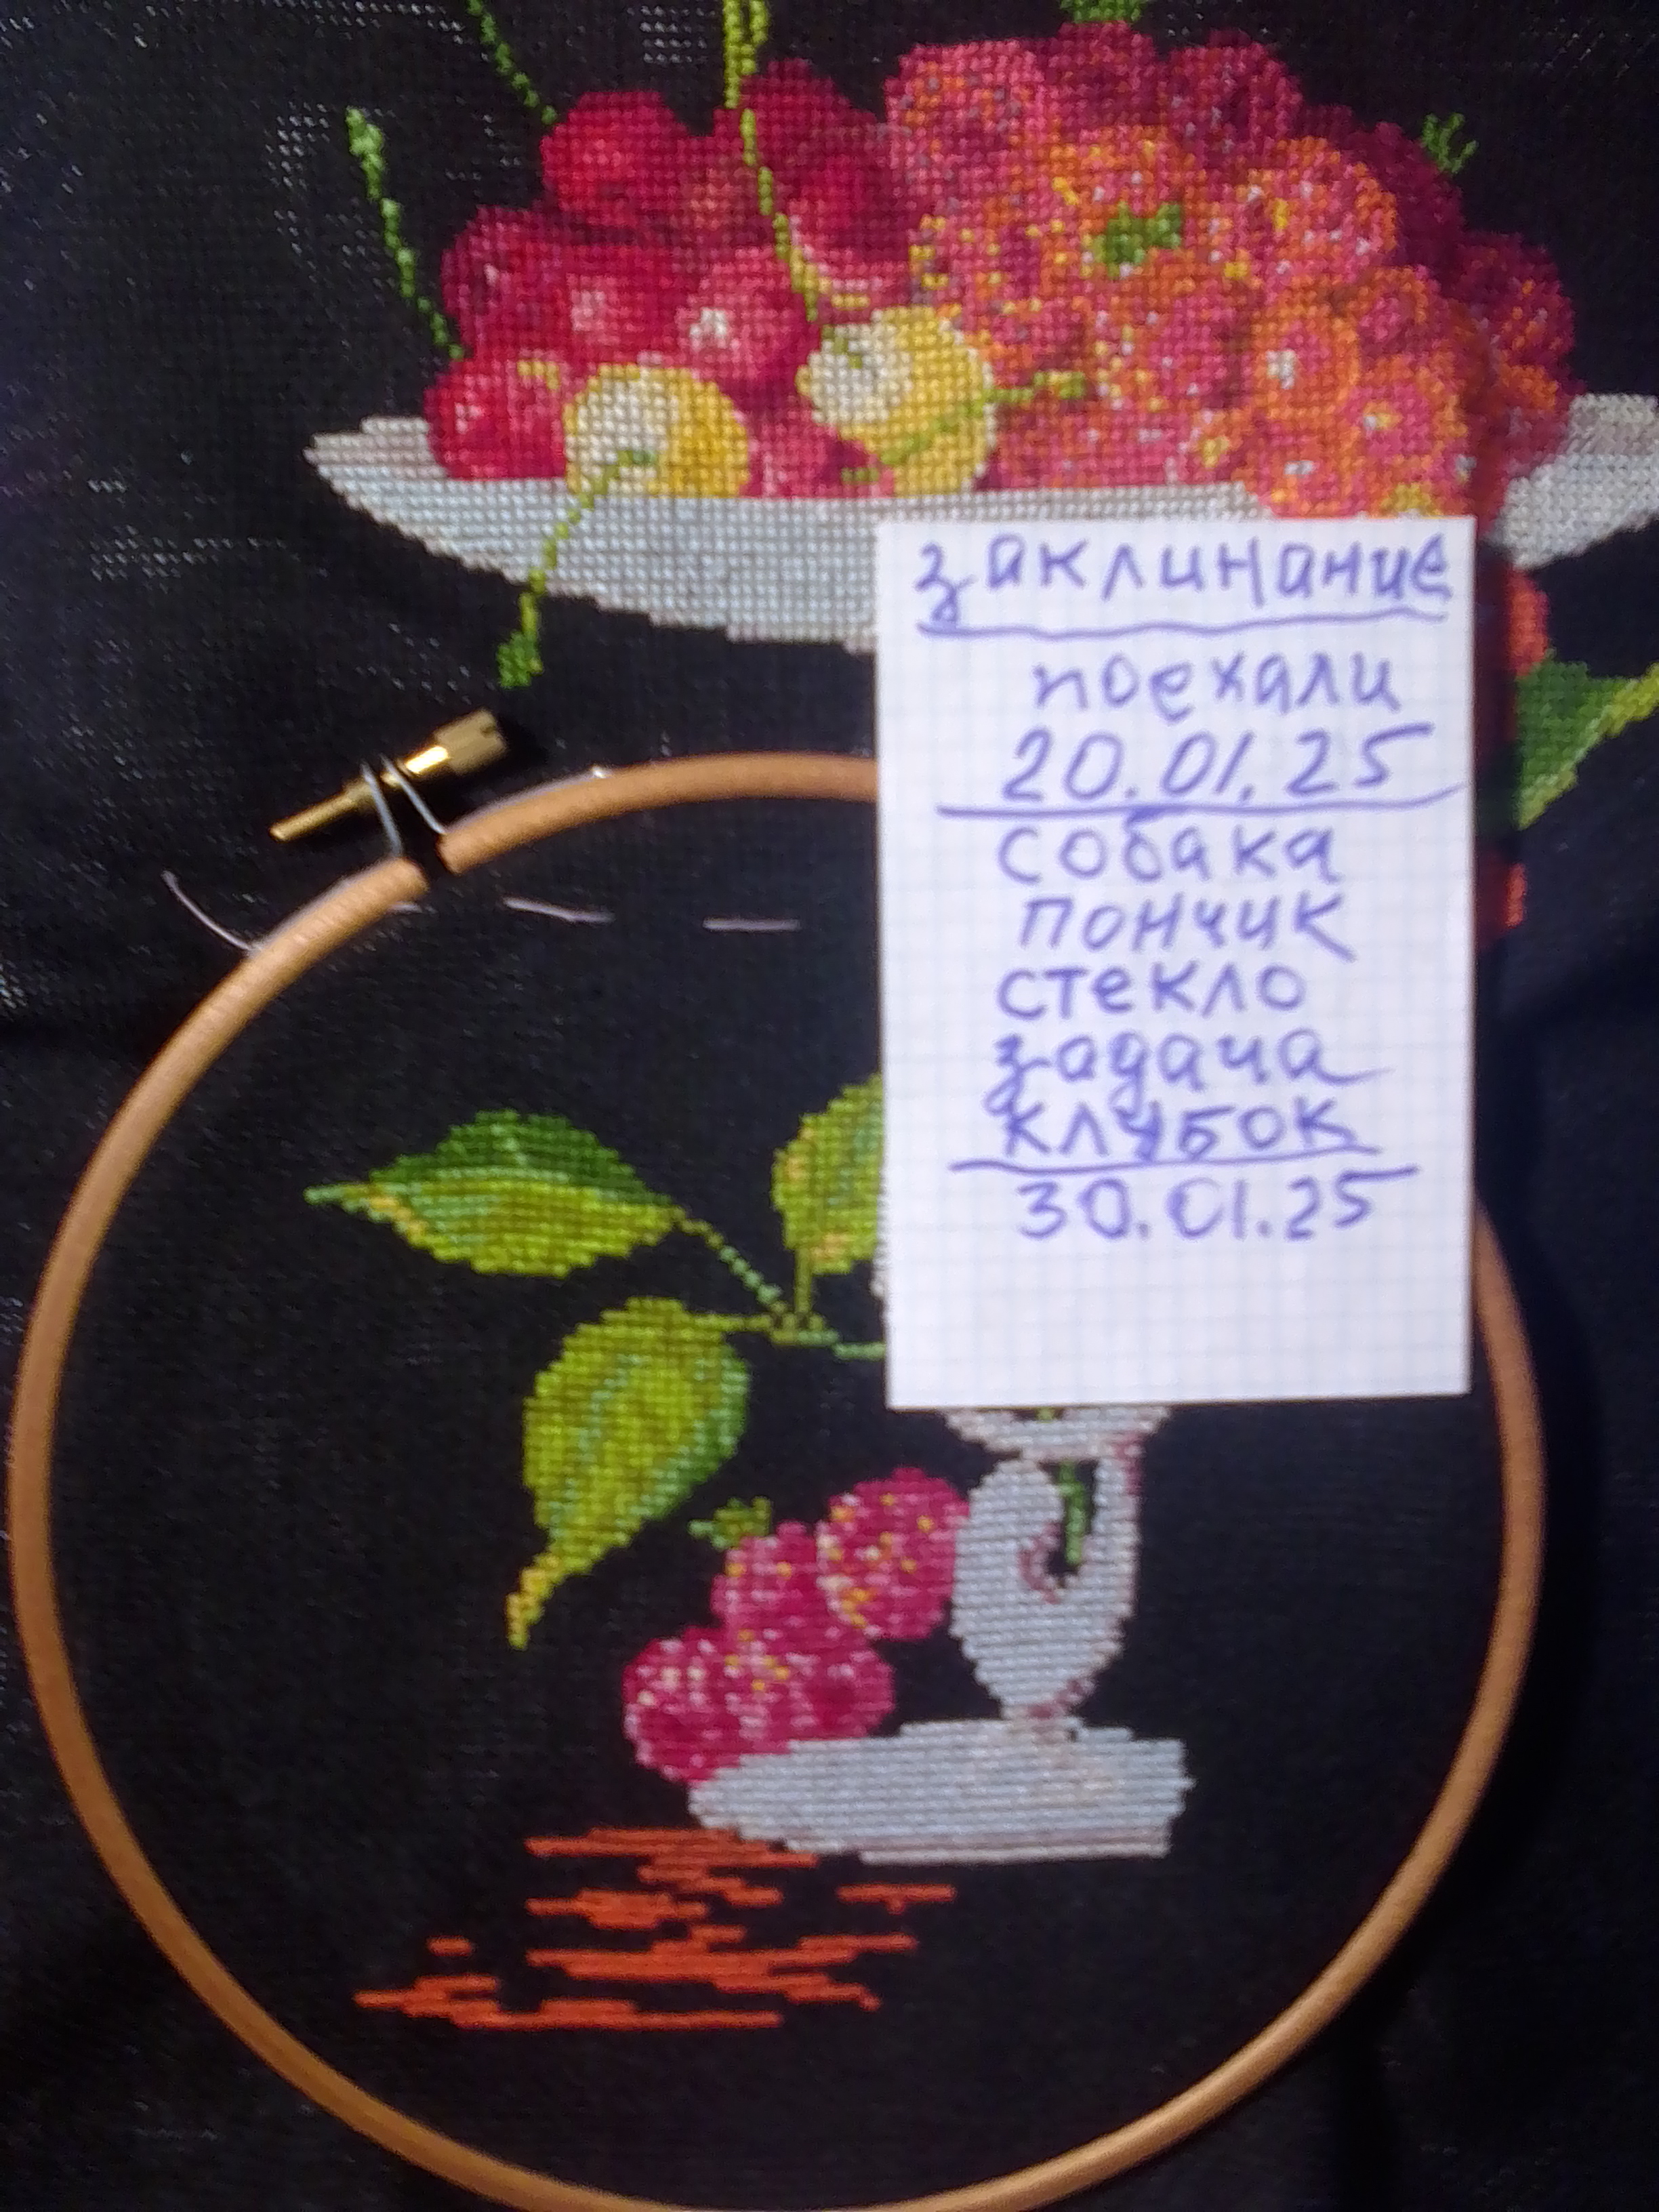 заклинание
поехали
20.01.25
собака
пончик
стекло
задача
клубок
30.01.25